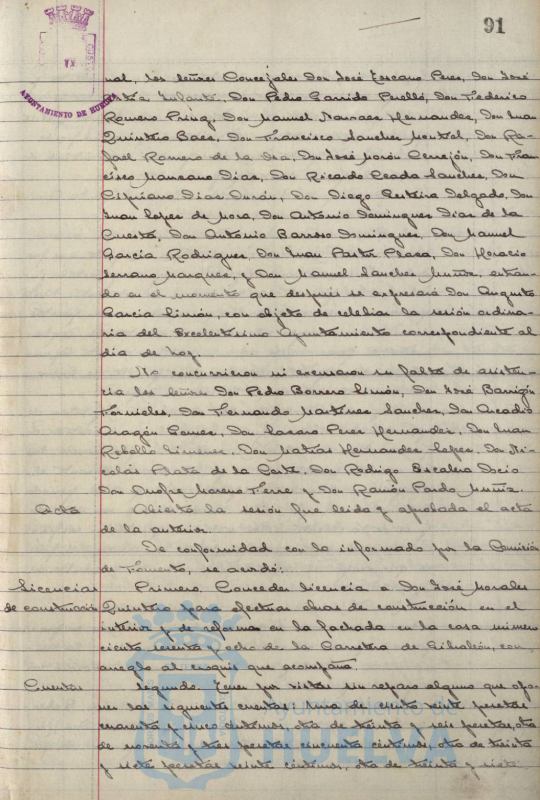 91
AYUNTAMIENTO DE HUELVA
nal, los señores Concejales Don José Toscano Perez, Don José
Infante, Don Pedro Garrido Perelló, Don Federico
Romero Don Manuel Narvaez Hernandez, Don Juan
Quintero Baez, Don Francisco Sanchez Don Ra-
fael Romero de la Osa, Don José Morón Cerejón, Don Fran-
cisco Manzano Diaz, Don Ricardo Sanchez, Don
Cipriano Diaz Durán, Don Diego Delgado, Don
Juan Lopez de Mora, Don Antonio Dominguez Diaz de la
Cuesta, Don Antonio Barroso Dominguez, Don Manuel
Garcia Rodriguez, Don Juan Pastor Plaza, Don Horacio
Serrano Marquez, y Don Manuel Sanchez Muñoz, entran-
do en el momento que después se expresará Don Augusto
Garcia Limón, con objeto de celebrar la sesión ordina-
ria del Excelentísimo Ayuntamiento correspondiente al
dia de hoy.
No concurrieron ni excusaron su falta de asisten-
cia los señores Don Pedro Borrero Limón, Don José Barrigón
Fornieles, Don Fernando Martinez Sanchez, Don Arcadio
Aragón Gomez, Don Lazaro Perez Hernandez, Don Juan
Rebollo Jimenez, Don Matias Hernandez Lopez, Don Ni-
colás de la Corte, Don Rodrigo Escalera
Don Onofre Moreno y Don Ramón Pardo Muñiz.
Acta Abierta la sesión fue leida y aprobada el acta
de la anterior.
De conformidad con lo informado por la Comisión
de Fomento, se acordó:
Licencias Primero. Conceder licencia a Don José Morales
de construcción Quintero para efectuar obras de construcción en el
interior y de reforma en la fachada en la casa número
ciento sesenta y ocho de la Carretera de Gibraleón, con
arreglo al croquis que acompaña.
Cuentas Segundo. Tener por vistas sin reparo alguno que opo-
ner las siguientes cuentas: Una de ciento siete pesetas
cuarenta y cinco centimos, otra de treinta y seis pesetas, otra
de noventa y tres pesetas cincuenta centimos, otra de treinta
y siete pesetas veinte centimos, otra de treinta y siete
Ayuntamiento de
HUELVA